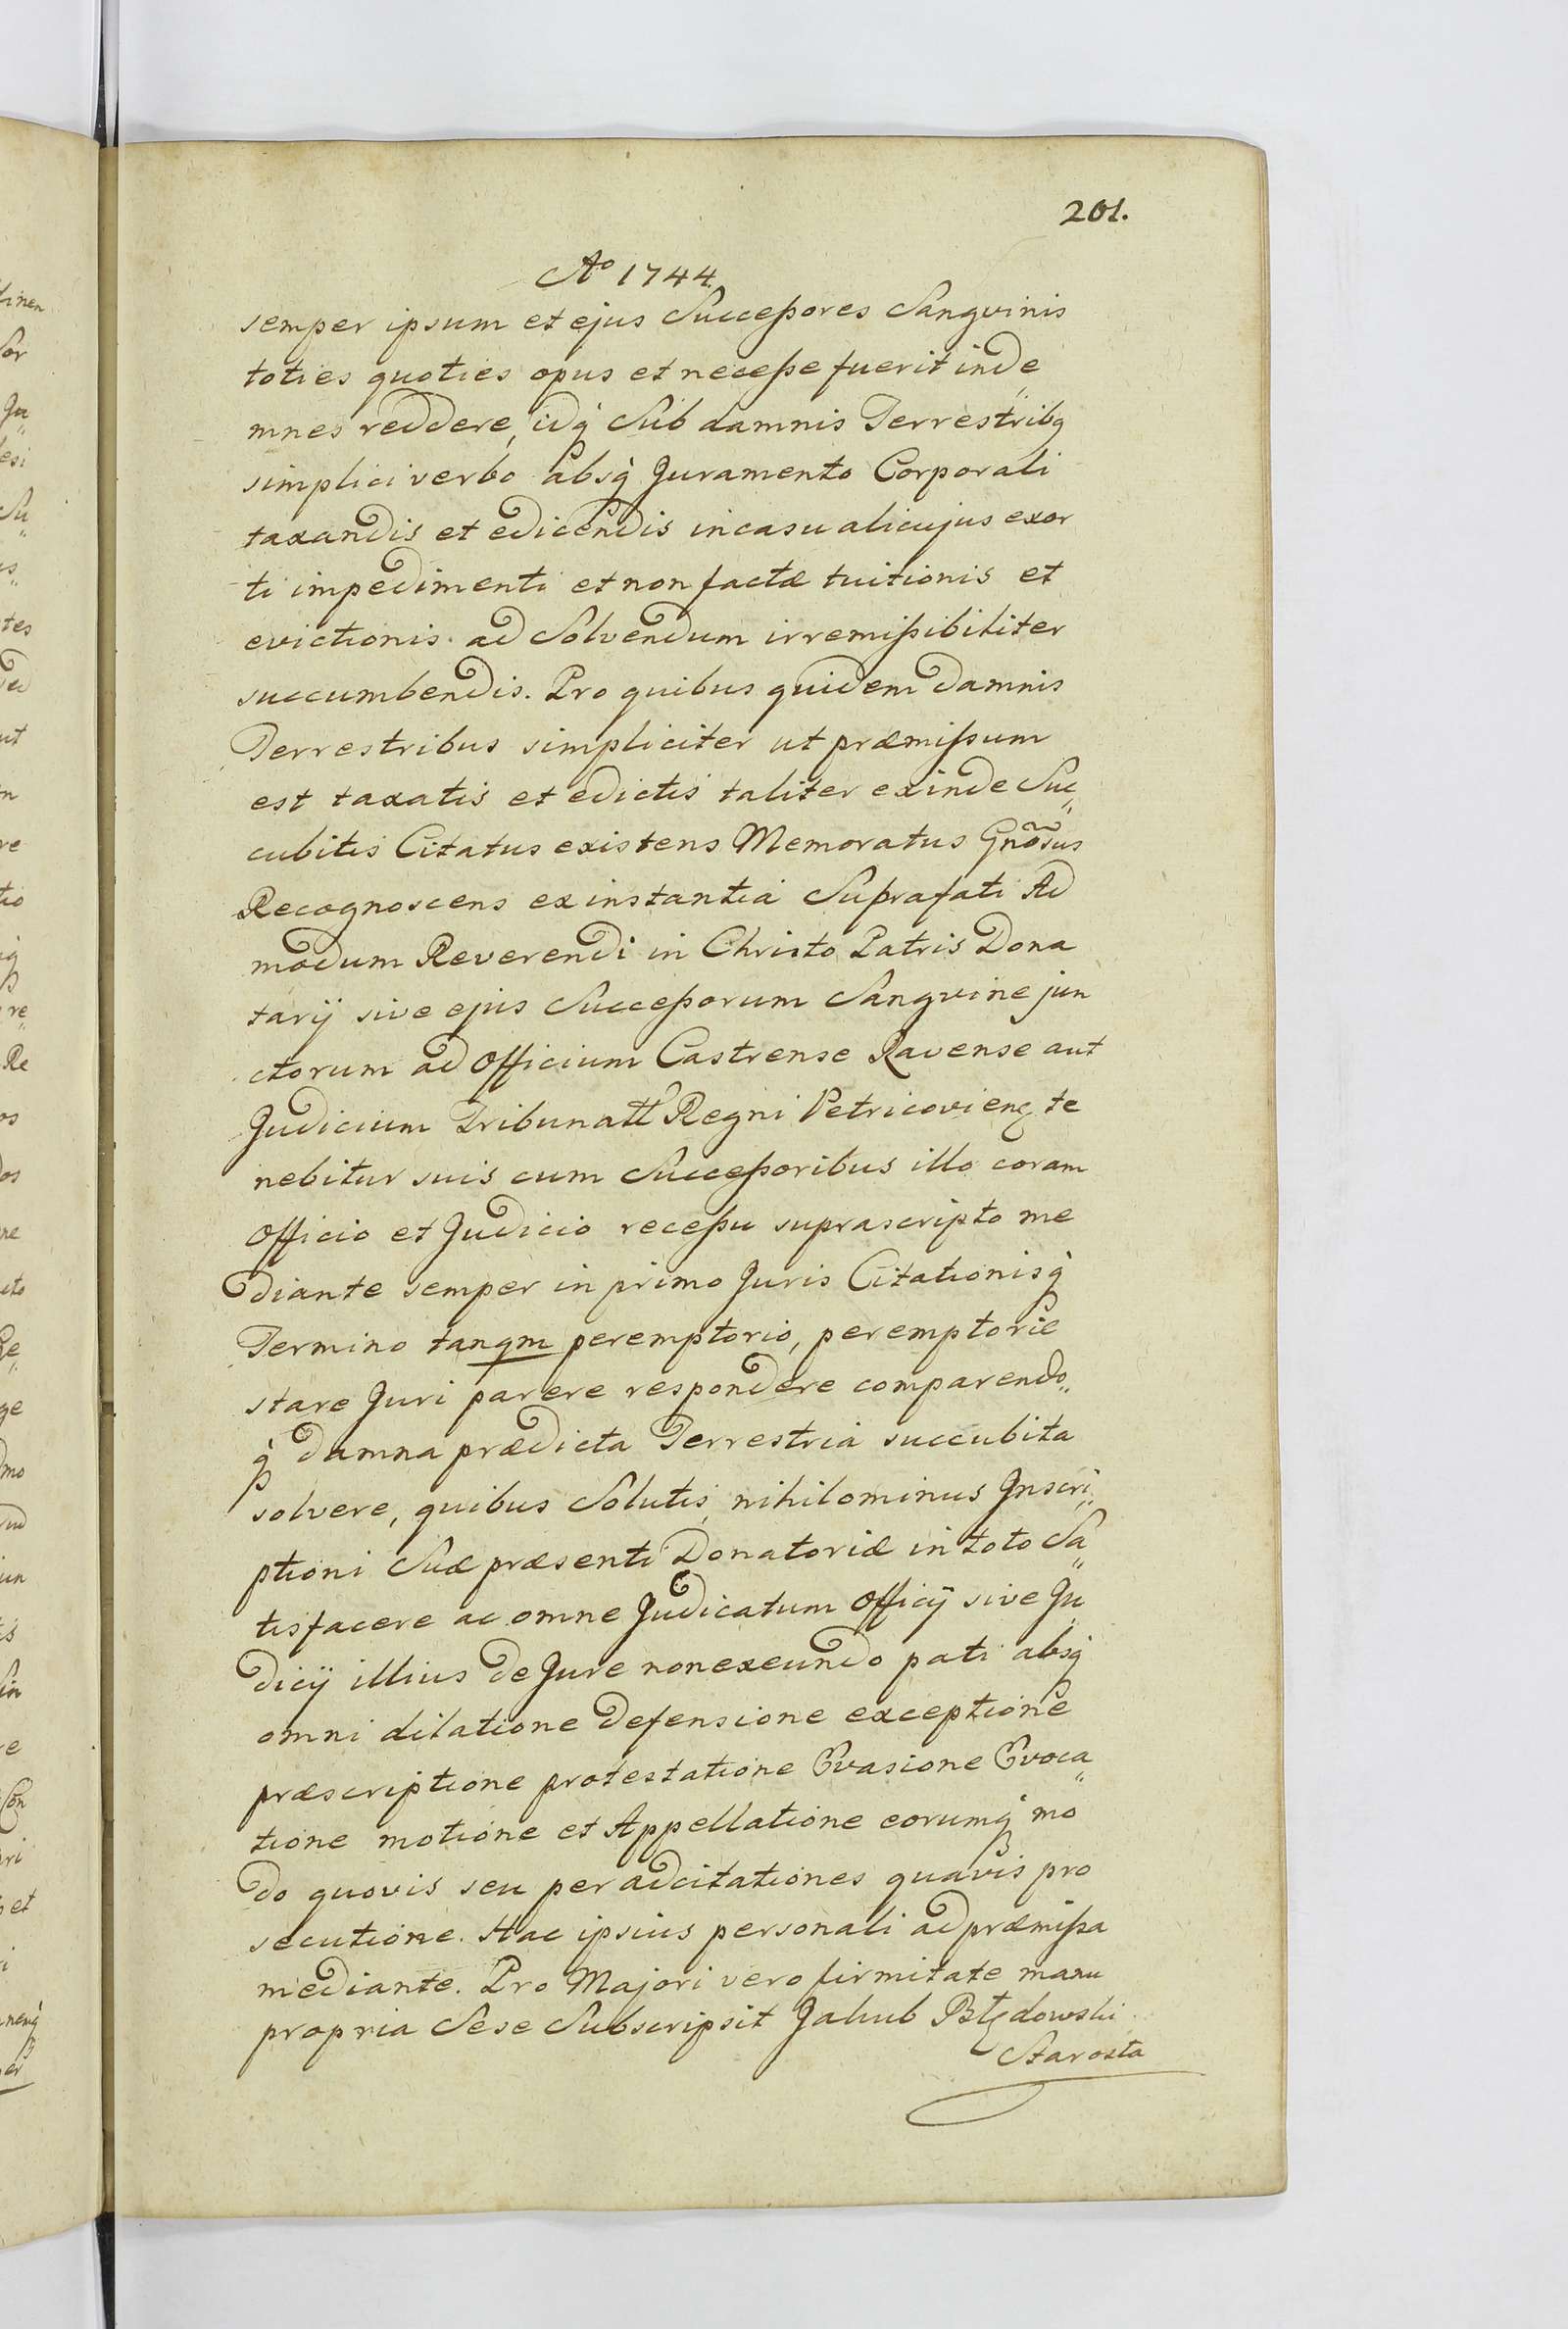 201.
Aº 1744.
semper ipsum et ejus Succeßores Sangvinis
toties quoties opus et neceße fuerit inde„
mnes reddere, idq̃ Sub damnis Terrestribq
simplici verbo absq̃ Juramento Corporali
taxandis et edicendis in casu alicujus exor
ti impedimenti et non factæ tuitionis et
evictionis. ad Solvendum irremißibiliter
succumbendis. Pro quibus quidem damnis
Terrestribus simpliciter ut præmißum
est taxatis et edictis taliter exinde Suc„
cubitis Citatus existens Memoratus Gnõsus
Recognoscens ex instantia Suprafati Ad
modum Reverendi in Christo Patris Dona
tarij sive ejus Succeßorum Sangvine jun
ctorum ad Officium Castrense Ravense aut
Judicium Tribunatt Regni Petricovienς te
nebitur suis cum Succeßoribus illo coram
Officio et Judicio receßu suprascripto me
diante semper in primo Juris Citationisq̃
Termino tanqm peremptorio, peremptorie
stare Juri parere respondere comparendo„
q̃ damna prædicta Terrestria succubita
solvere, quibus Solutis, nihilominus Inscri„
ptioni Suæ præsenti Donatoriæ in toto Sa„
tisfacere ac omne Judicatum Officij sive Ju„
dicij illius de Jure non exeundo pati absq̃
omni dilatione defensione exceptione
præscriptione protestatione Evasione Evoca„
tione motione et Appellatione eorumq̃ mo
do quovis seu per adcitationes quavis pro
secutione. Hac ipsius personali ad præmißa
mediante. Pro Majori vero firmitate manu
propria Sese Subscripsit Jakub Błędowski
Starosta